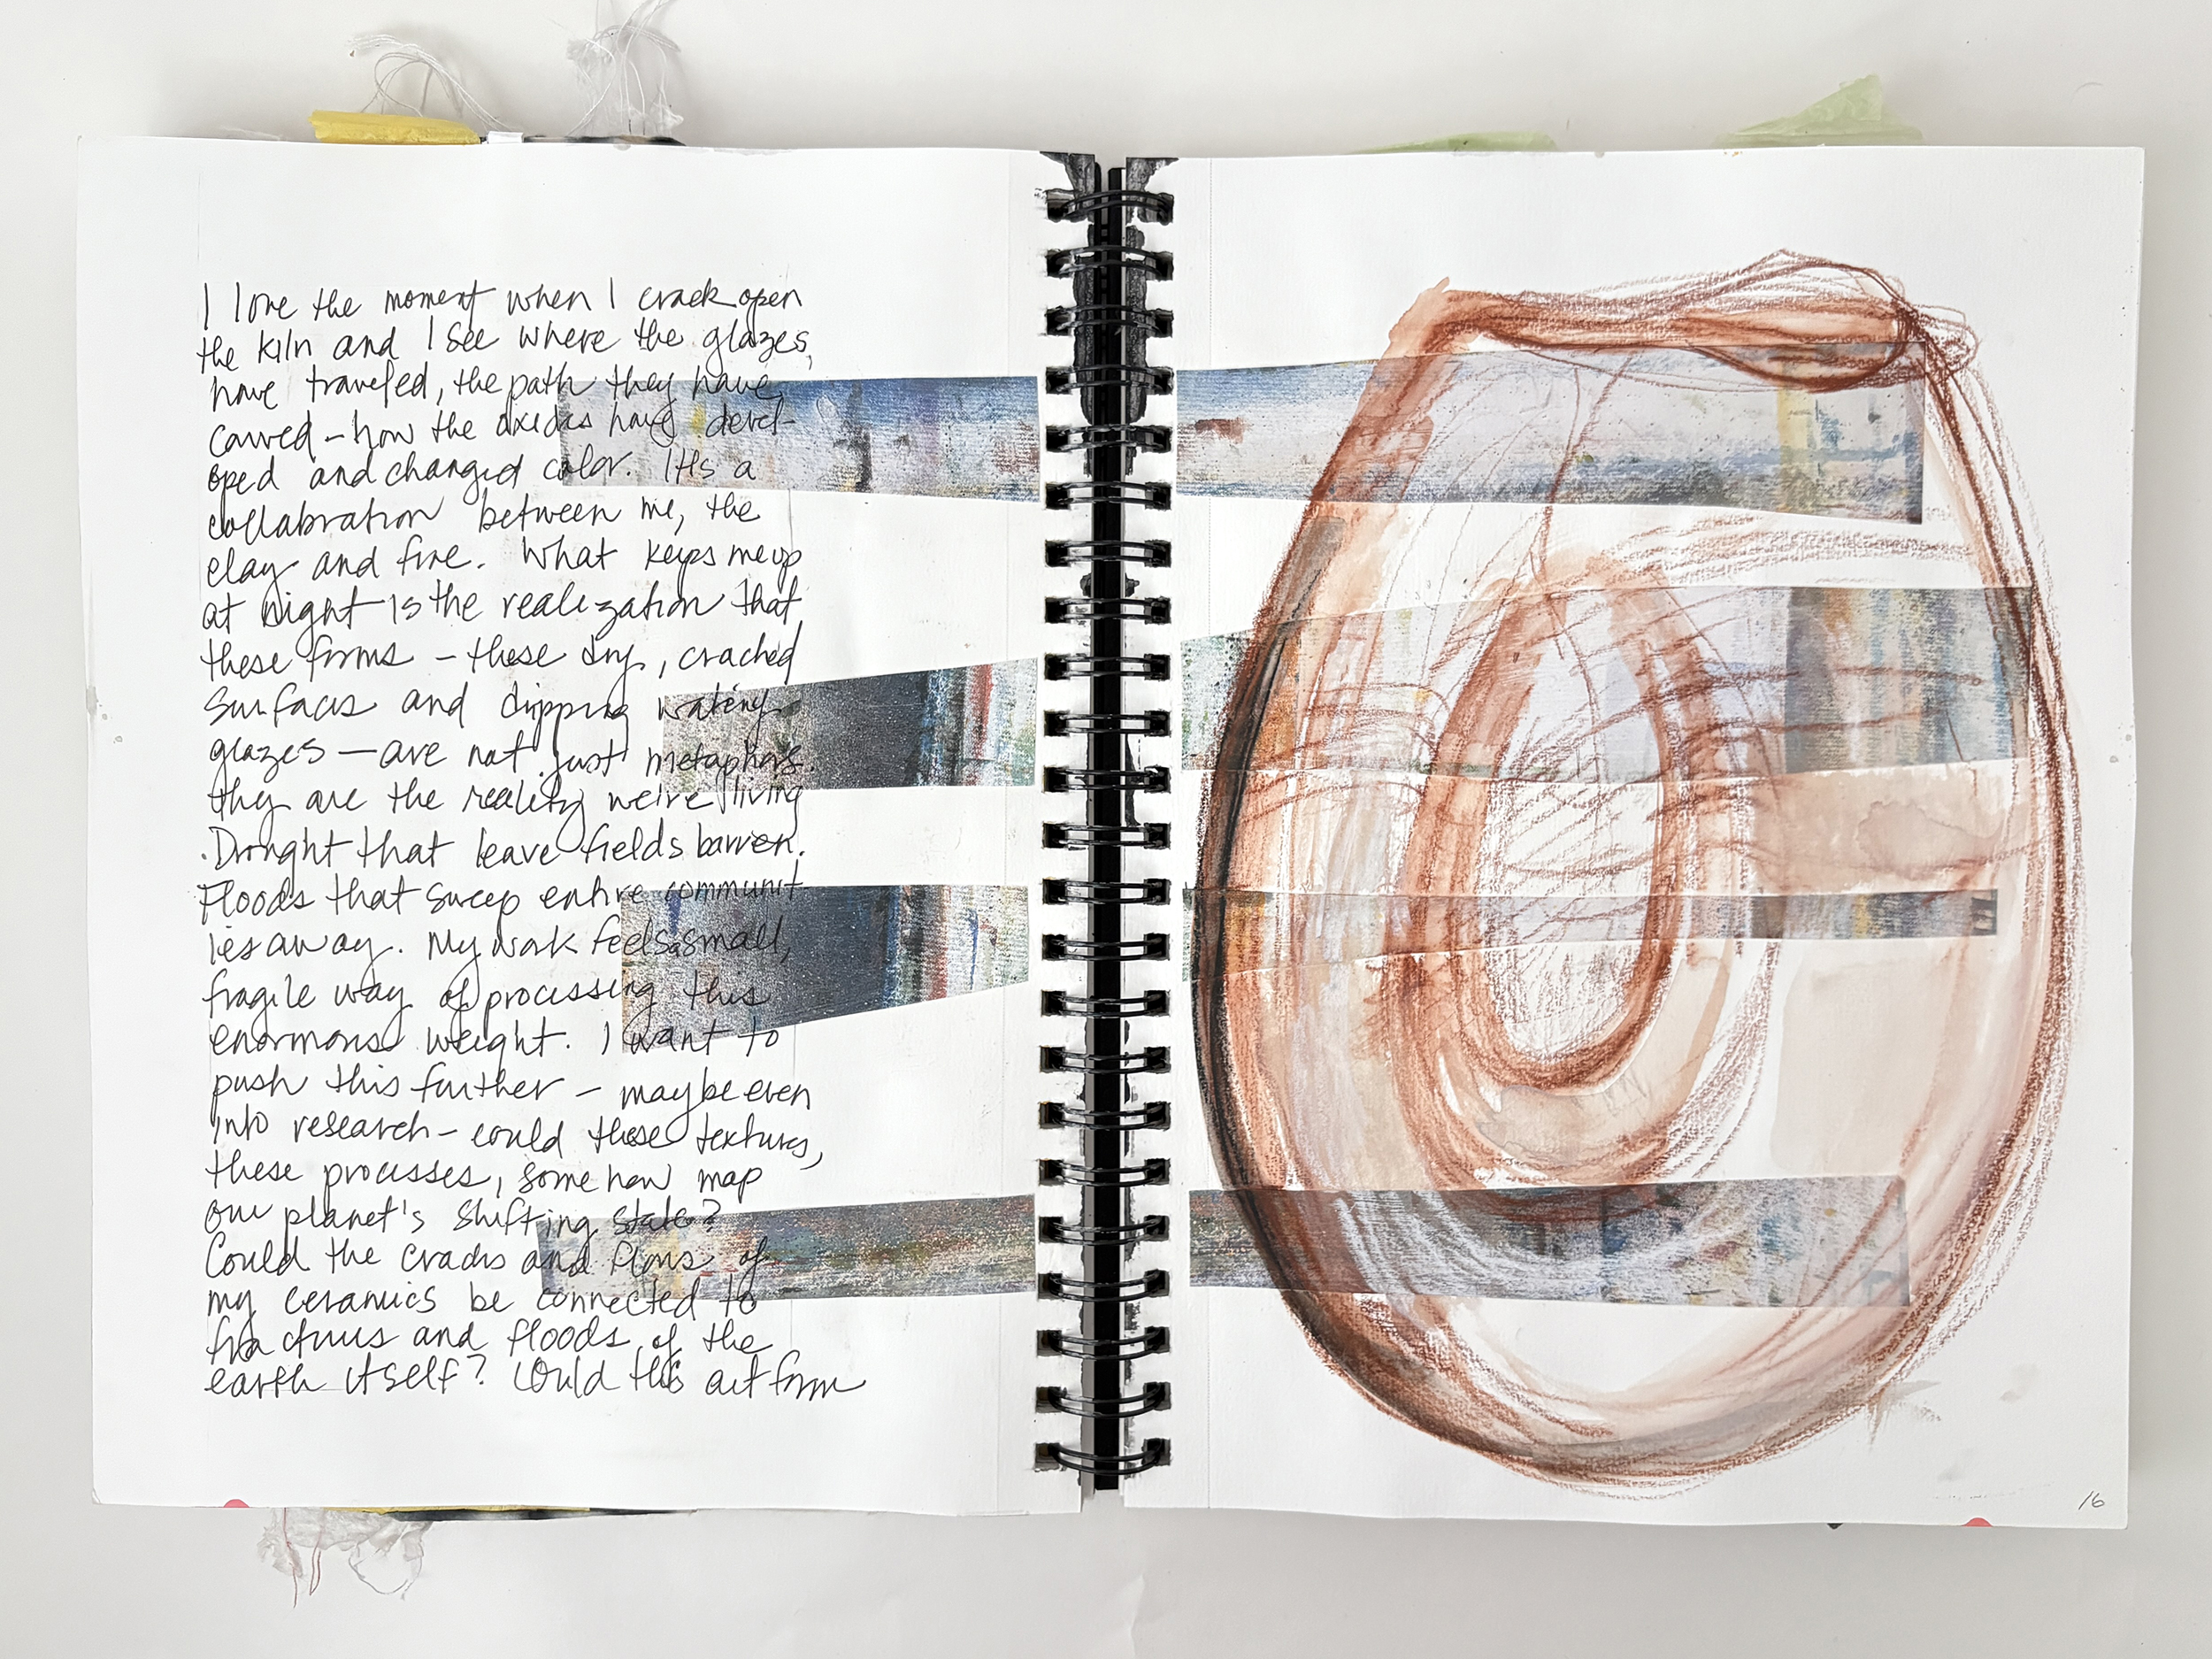 I love the moment when I crack open
the kiln and I see where the glazes
have traveled, the path they have
carved – how the oxides have devel-
oped and changed color. It's a
collabration between me, the
clay and fire. What keeps me up
at night is the realization that
these forms – these dry, cracked
surfaces and dripping watery
glazes – are not just metaphors.
they are the reality we're living
. Drought that leave fields barren.
Floods that sweep entire communit
ies away. My work feels a small,
fragile way of processing this
enormous weight. I want to
push this further – maybe even
into research – could these textures,
these processes, somehow map
our planet's shifting state?
Could the cracks and flows of
my ceramics be connected to
fractures and floods of the
earth itself? Could this art form
16